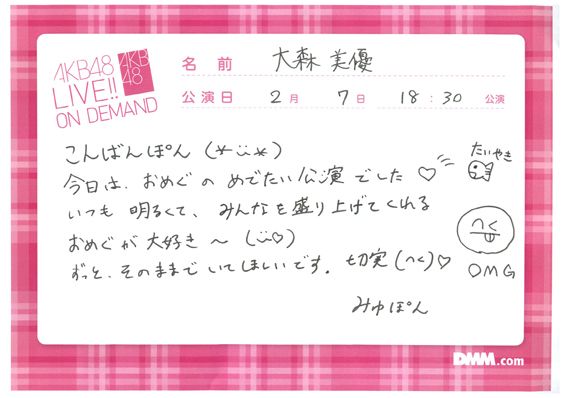 AKB48
LIVE!!
ON DEMAND
AKB
48
名前 大森美優
公演日 2月 7日 18:30 公演
こんばんぽん (*¨*)
今日は、おめぐの めでたい公演でした♡
たいやき
いつも 明るくて、みんなを盛り上げてくれる
おめぐが大好き〜 (¨♡)
ずっと、そのままで いてほしいです。切実(へく)♡
へく
OMG
みゆぽん
DMM.com